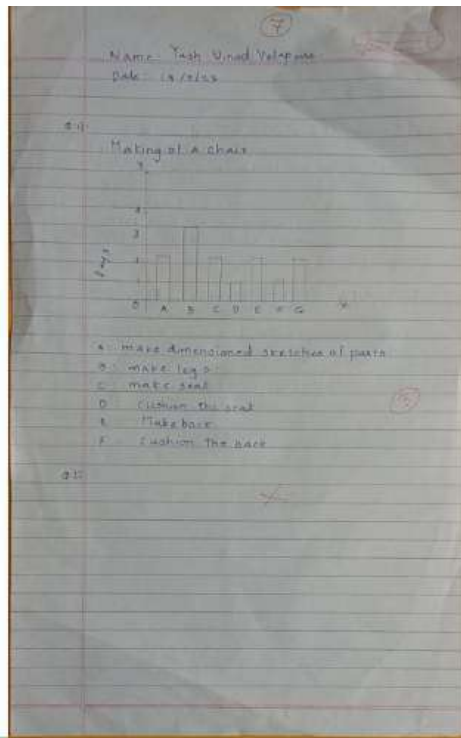 7
Name: Yash Vinod
Date:
Q.1)
Making of a chair
Y
4
3
2
1
Days
0 A B C D E F G X
A: make dimensioned sketches of parts
B: make legs
C: make seat
D: Cushion the seat
E: Make back
F: Cushion the back
5